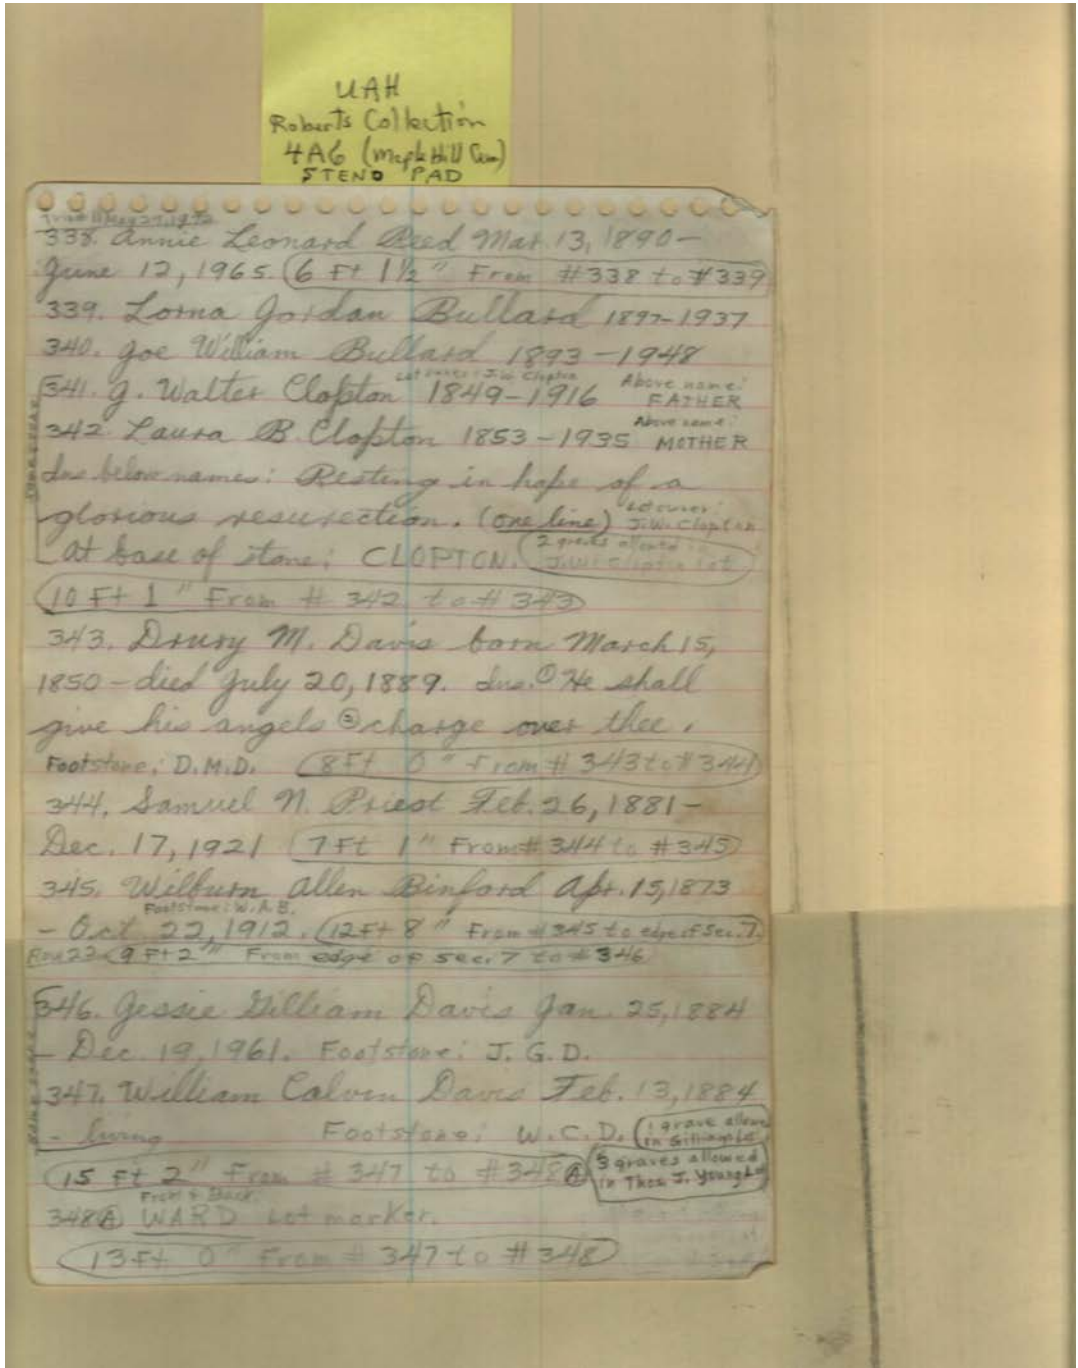 UAH
Roberts Collection
4A6 (Maple Hill Cem)
STENO PAD
May 27, 1972
338. Annie Leonard Reed Mar. 13, 1890-
June 12, 1965. (6 Ft 1½" From #338 to #339)
339. Lorna Jordan Bullard 1897-1937
340. Joe William Bullard 1893-1948
Lot owner: J.W. Clopton
341. J. Walter Clopton 1849-1916 Above name: FATHER
342. Laura B. Clopton 1853-1935 Above name: MOTHER
SAME STONE
Ins below names: Resting in hope of a
glorious resurection. (one line) Lot owner: J.W. Clopton
at base of stone: CLOPTON. (2 graves allowed in J.W. Clopton Lot)
(10 Ft 1" From # 342 to # 343)
343. Drury M. Davis born March 15,
1850-died July 20, 1889. Ins. ① He shall
give his angels ② charge over thee.
Footstone: D.M.D. (8 Ft 0" From # 343 to # 344)
344. Samuel N. Priest Feb. 26, 1881-
Dec. 17, 1921 (7 Ft 1" From # 344 to #345)
345. Wilburn Allen Binford Apr. 15, 1873
Footstone: W.A.B.
- Oct. 22, 1912. (12 Ft 8" From #345 to edge of Sec. 7.)
Row 23 (9 Ft 2" From edge of Sec. 7 to #346)
346. Jessie Gilliam Davis Jan. 25, 1884
- Dec. 19, 1961. Footstone: J. G. D.
347. William Calvin Davis Feb. 13, 1884
SAME STONE
- living Footstone: W.C.D. (1 grave allowed in Lot)
(15 Ft 2" From # 347 to #348 Ⓐ (3 graves allowed in Thos J. Young Lot)
Front & Back:
348 Ⓐ WARD Lot marker.
(13 Ft 0" From # 347 to # 348)